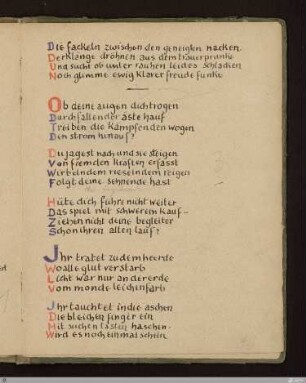 Die fackeln zwischen den geneigten nacken.
Der klänge dröhnen aus dem trauerprunke
Und sucht ob unter rauhen leides schlacken
Noch glimme ewig klarer freude funke
Ob deine augen dich trogen
Durch fallender äste hauf
Treiben die kämpfenden wogen
Den strom hinauf?
Du jagest nach und sie steigen
Von fremden kräften erfasst
Wirbelnd em rieselndem reigen
Folgt deine sehnende hast
Hüte dich führe nicht weiter
Das spiel mit schwerem kauf-
Ziehen nicht deine begleiter
Schon ihren alten lauf?
Ihr tratet zu dem heerde
Wo alle glut verstarb
Licht war nur an der erde
Vom monde leichenfarb
Ihr tauchtet in die aschen
Die bleichen finger ein
Mit suchen tasten haschen-
Wird es noch einmal schein